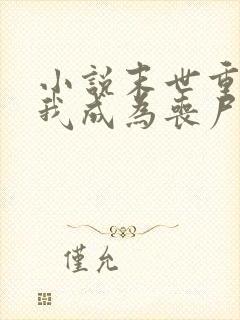 小說末世重
我成為喪尸
僅允